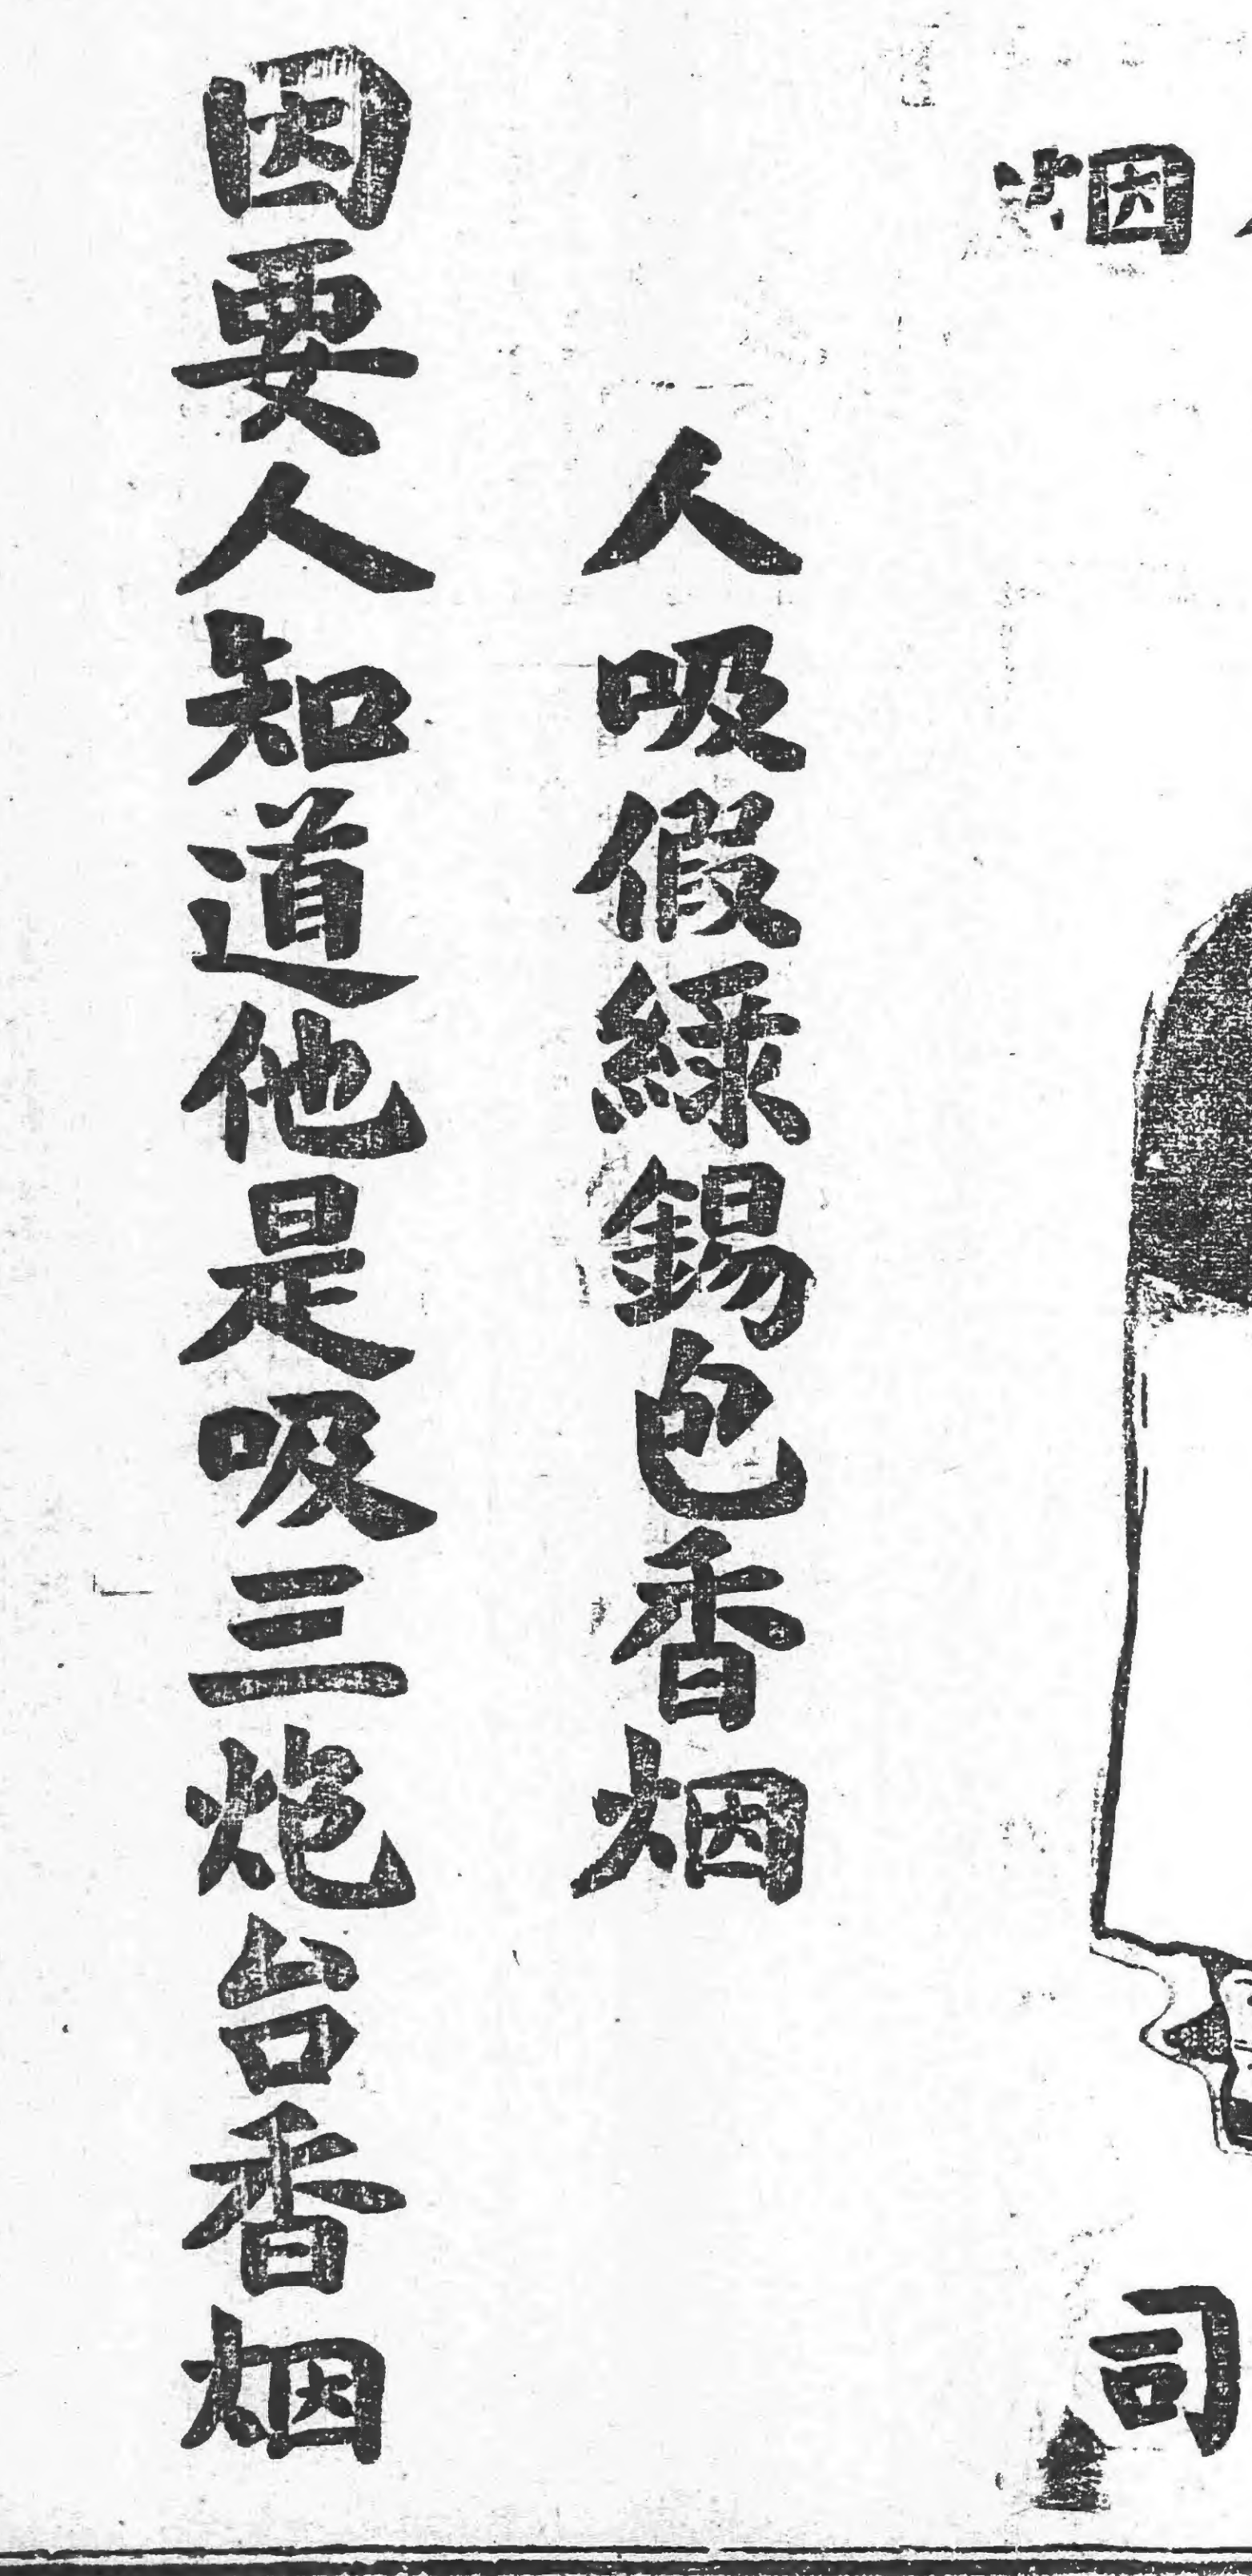 烟
司
人吸假綠錫包香烟
因要人知道他是吸三炮台香烟